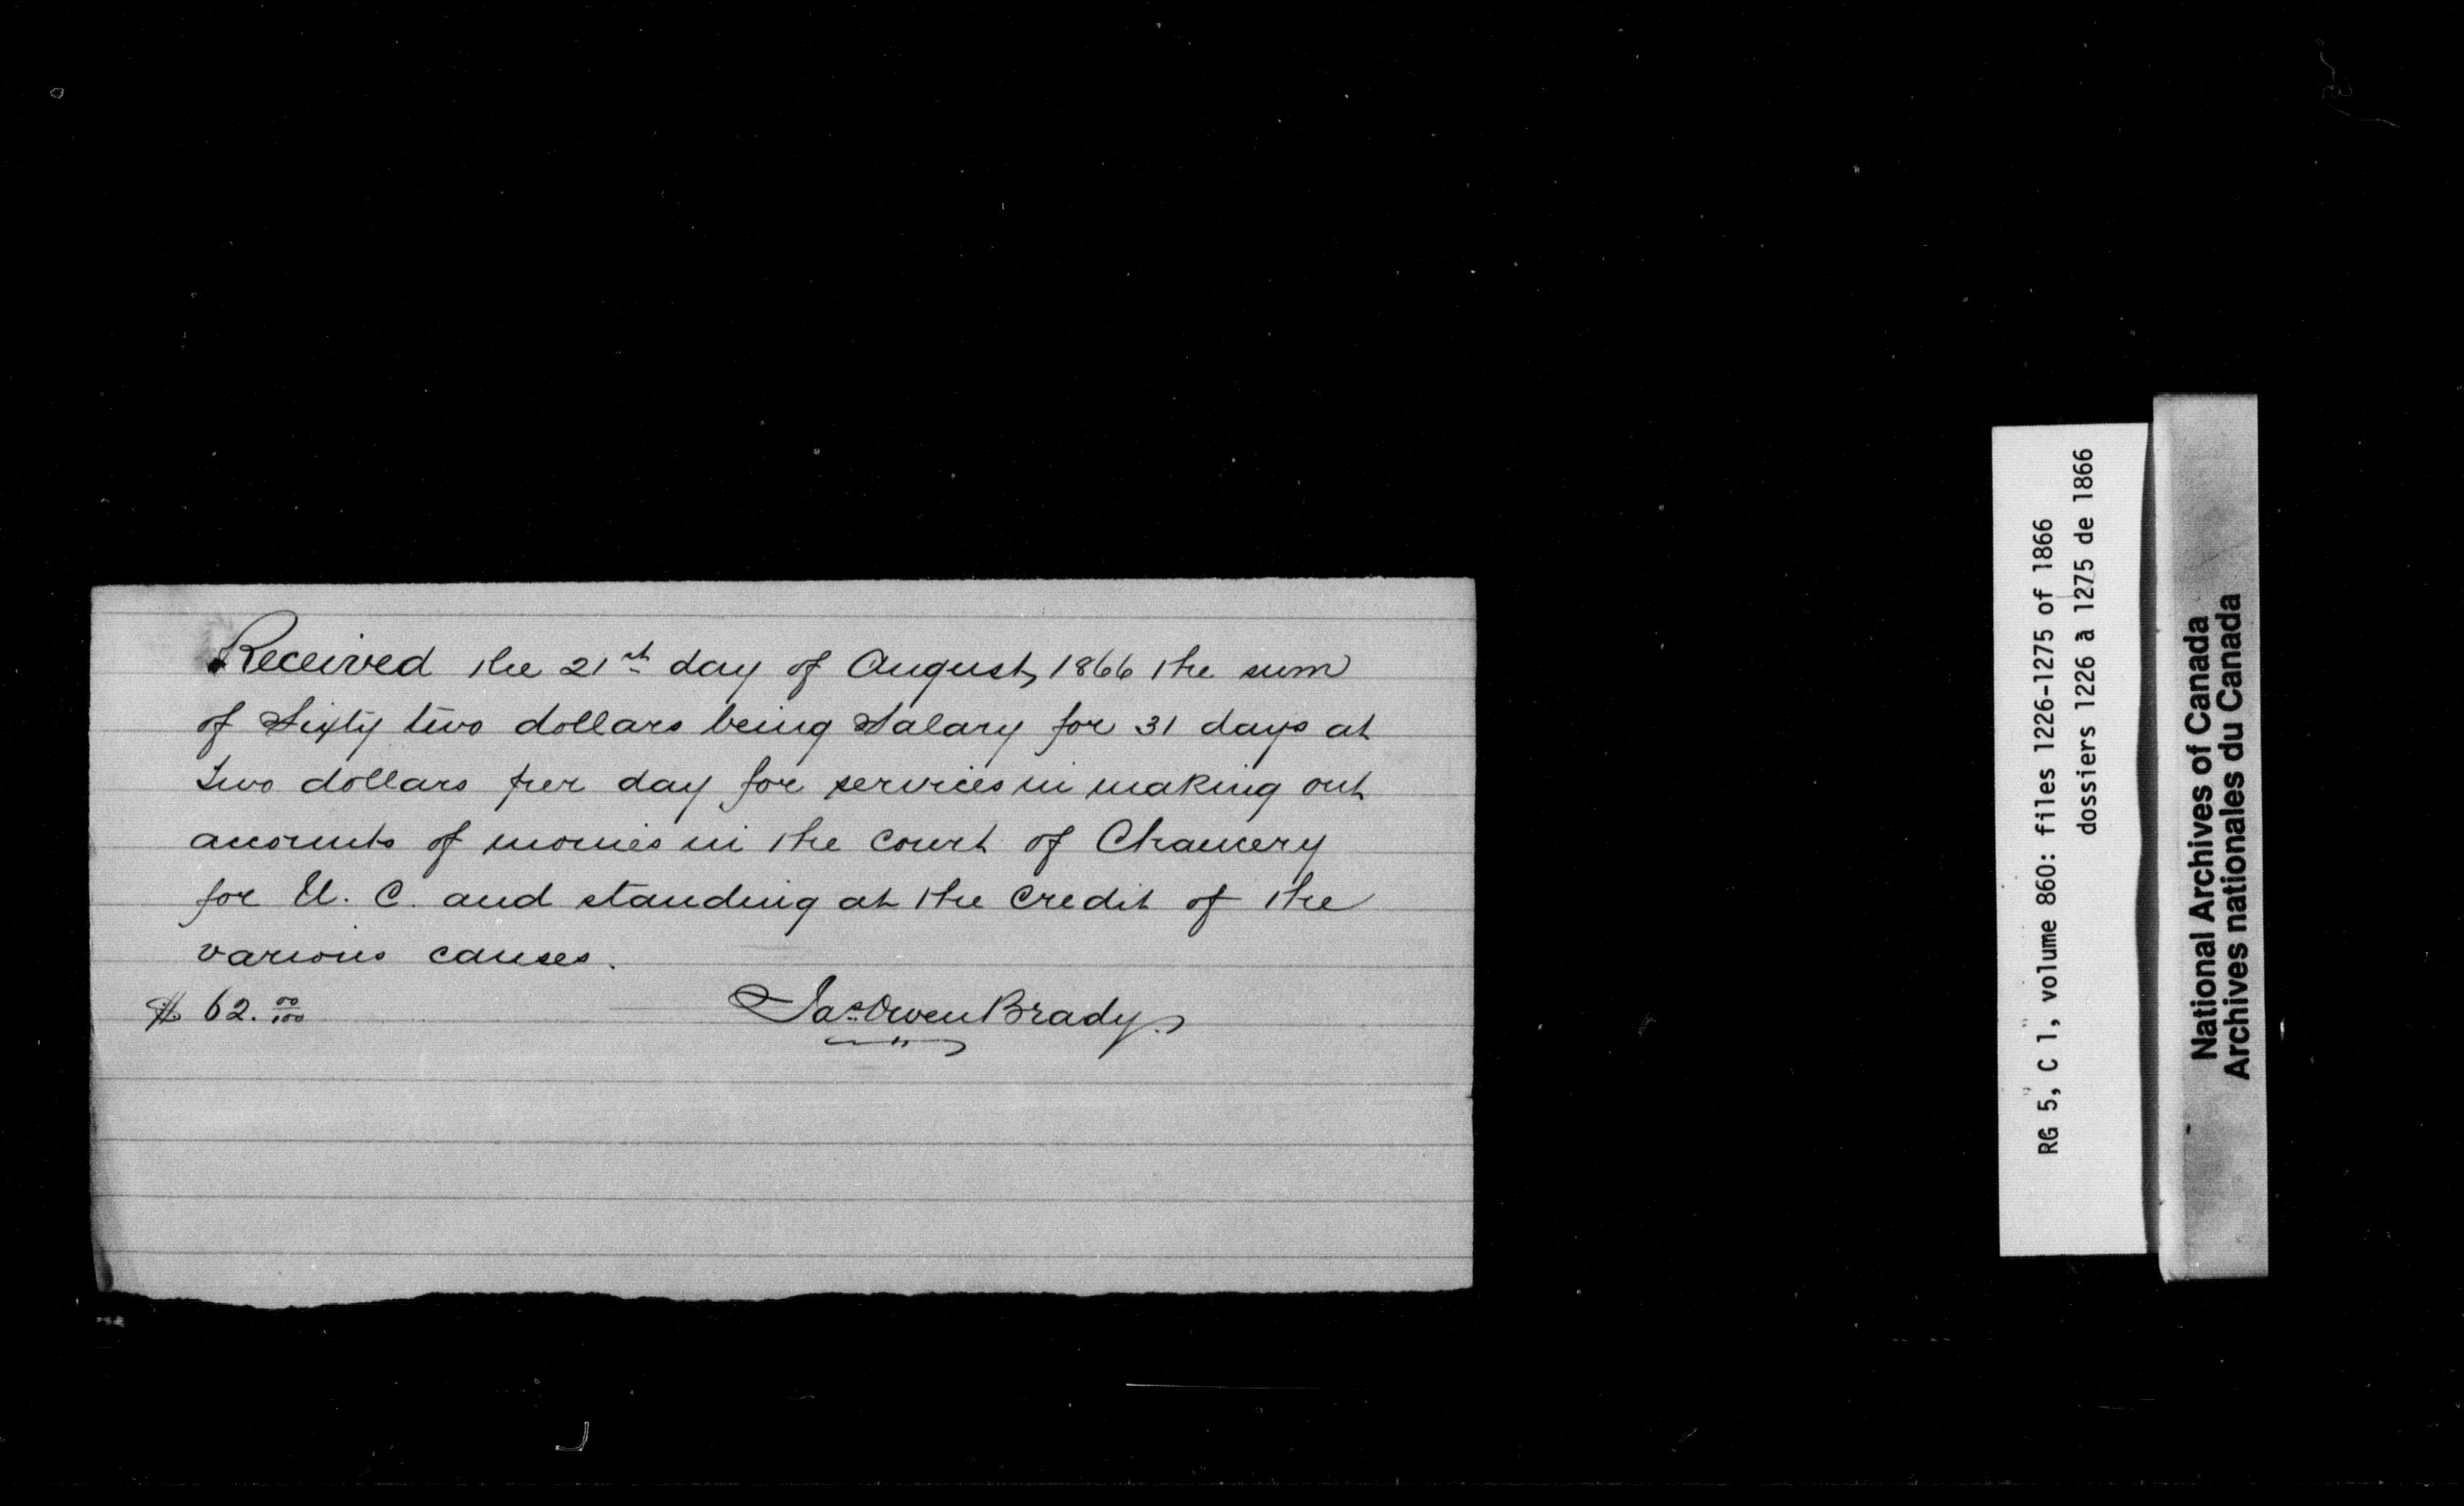 Received the 21st day of August, 1866 the sum
of Sixty two dollars being Salary for 31 days at
two dollars per day for services in making out
accounts of monies in the Court of Chancery
for U. C. and standing at the Credit of the
various causes.
$ 62. 00/100
Jas Owen Brady
RG 5, C 1, volume 860: files 1226-1275 of 1866
dossiers 1226 à 1275 de 1866
National Archives of Canada
Archives nationales du Canada